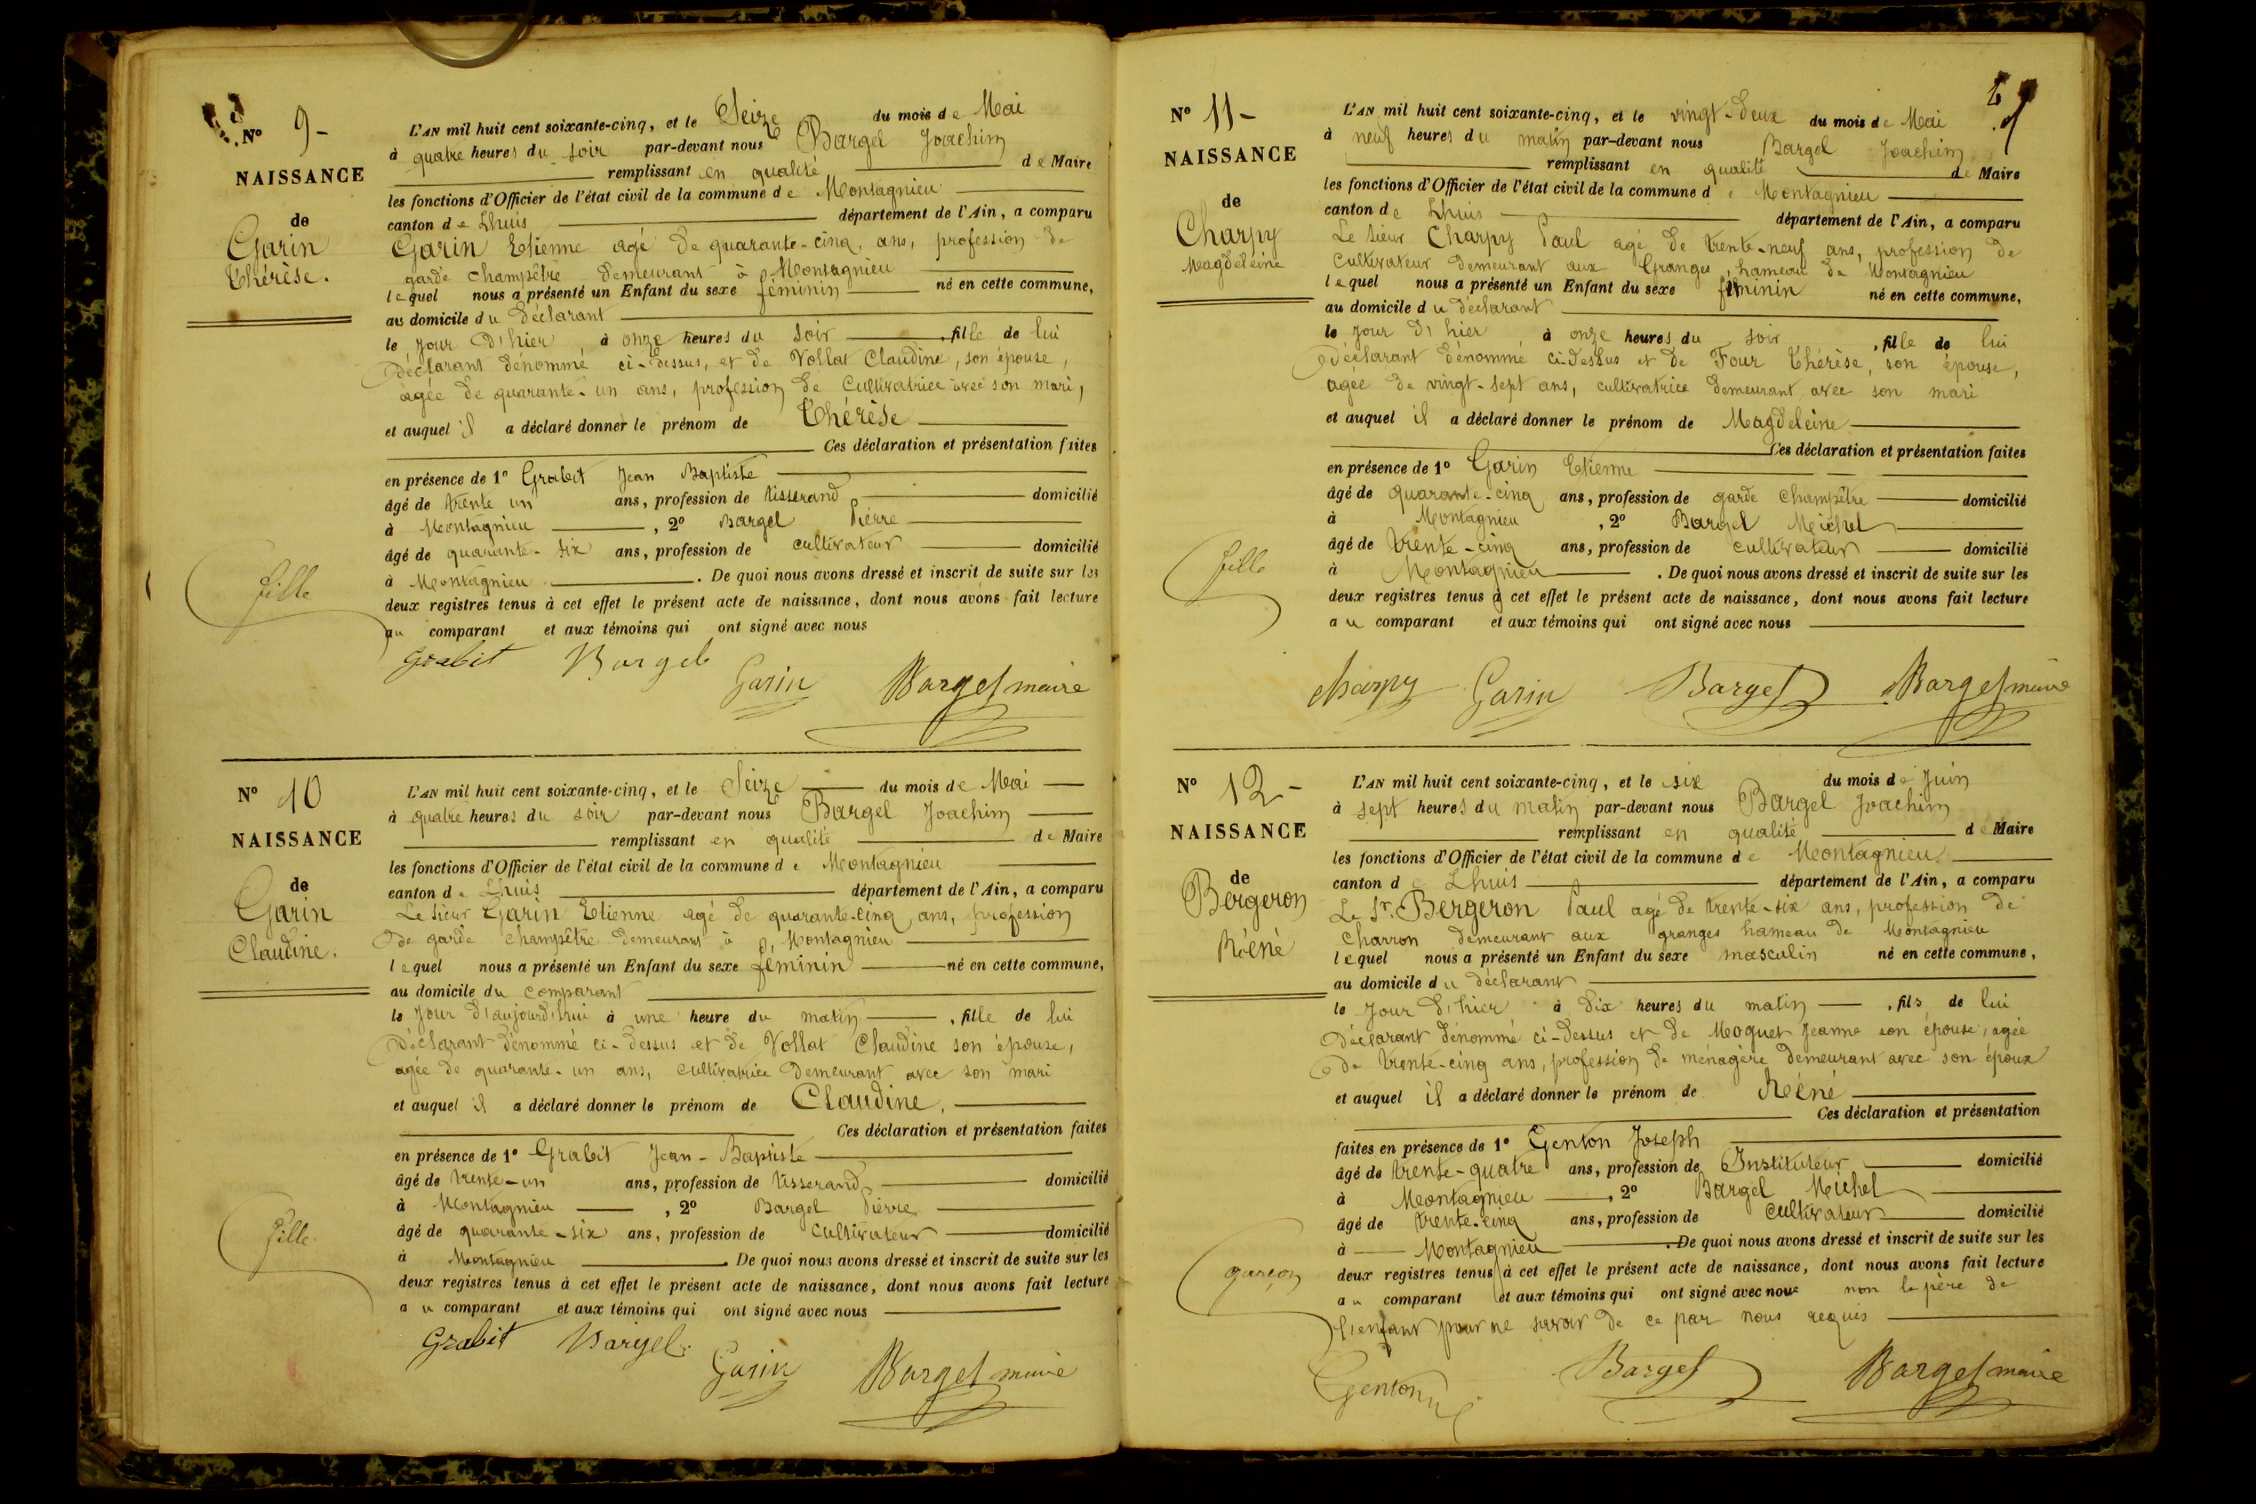 N° 9 -
NAISSANCE
de
Garin
Thérèse.
L'AN mil huit cent soixante-cinq, et le Seize du mois de Mai
à quatre heures du soir par-devant nous Bargel Joachim
remplissant en qualité de Maire
les fonctions d'Officier de l'état civil de la commune de Montagnieu
canton de Lhuis département de l'Ain, a comparu
Garin Etienne agé de quarante-cinq, ans, profession de
garde champêtre demeurant à Montagnieu
lequel nous a présenté un Enfant du sexe féminin né en cette commune,
au domicile du déclarant
le jour d'hier à onze heures du soir, fille de lui
déclarant dénommé ci-dessus, et de Vollat Claudine, son épouse,
agée de quarante-un ans, profession de Cultivatrice avec son mari,
et auquel il a déclaré donner le prénom de Thérèse
Ces déclaration et présentation faites
en présence de 1° Grabit Jean Baptiste
âgé de trente un ans, profession de tisserand domicilié
à Montagnieu, 2° Bargel Pierre
âgé de quarante-six ans, profession de cultivateur domicilié
à Montagnieu. De quoi nous avons dressé et inscrit de suite sur les
fille
deux registres tenus à cet effet le présent acte de naissance, dont nous avons fait lecture
au comparant et aux témoins qui ont signé avec nous
Grabit Bargel Garin Bargel maire
N° 10
NAISSANCE
de
Garin
Claudine.
L'AN mil huit cent soixante-cinq, et le Seize du mois de Mai
à quatre heures du soir par-devant nous Bargel Joachim
remplissant en qualité de Maire
les fonctions d'Officier de l'état civil de la commune de Montagnieu
canton de Lhuis département de l'Ain, a comparu
Le sieur Garin Etienne agé de quarante-cinq, ans, profession
de garde champêtre demeurant à Montagnieu
lequel nous a présenté un Enfant du sexe féminin né en cette commune,
au domicile du comparant
le jour d'aujourd'hui à une heure du matin, fille de lui
déclarant dénommé ci-dessus et de Vollat Claudine son épouse,
agée de quarante-un ans, cultivatrice demeurant avec son mari
et auquel il a déclaré donner le prénom de Claudine,
Ces déclaration et présentation faites
en présence de 1° Grabit Jean-Baptiste
âgé de trente-un ans, profession de tisserand domicilié
à Montagnieu, 2° Bargel Pierre
âgé de quarante-six ans, profession de cultivateur domicilié
fille
à Montagnieu. De quoi nous avons dressé et inscrit de suite sur les
deux registres tenus à cet effet le présent acte de naissance, dont nous avons fait lecture
au comparant et aux témoins qui ont signé avec nous
Grabit Bargel Garin Bargel maire
N° 11 -
NAISSANCE
de
Charpy
Magdeleine
L'AN mil huit cent soixante-cinq, et le vingt-deux du mois de Mai
à neuf heures du matin par-devant nous Bargel Joachim
remplissant en qualité de Maire
les fonctions d'Officier de l'état civil de la commune de Montagnieu
canton de Lhuis département de l'Ain, a comparu
Le sieur Charpy Paul agé de trente-neuf ans, profession de
cultivateur demeurant aux Granges, hameau de Montagnieu
lequel nous a présenté un Enfant du sexe féminin né en cette commune,
au domicile du déclarant
le jour d'hier à onze heures du soir, fille de lui
déclarant dénommé ci-dessus et de Four Thérèse, son épouse,
agée de vingt-sept ans, cultivatrice demeurant avec son mari
et auquel il a déclaré donner le prénom de Magdeleine
Ces déclaration et présentation faites
en présence de 1° Garin Etienne
âgé de quarante-cinq ans, profession de garde champêtre domicilié
à Montagnieu, 2° Bargel Michel
âgé de trente-cinq ans, profession de cultivateur domicilié
fille
à Montagnieu. De quoi nous avons dressé et inscrit de suite sur les
deux registres tenus à cet effet le présent acte de naissance, dont nous avons fait lecture
au comparant et aux témoins qui ont signé avec nous
Charpy Garin Bargel Bargel maire
N° 12 -
NAISSANCE
de
Bergeron
Réné
L'AN mil huit cent soixante-cinq, et le six du mois de Juin
à sept heures du matin par-devant nous Bargel Joachim
remplissant en qualité de Maire
les fonctions d'Officier de l'état civil de la commune de Montagnieu
canton de Lhuis département de l'Ain, a comparu
Le Sr. Bergeron Paul agé de trente-six ans, profession de
charron demeurant aux granges hameau de Montagnieu
lequel nous a présenté un Enfant du sexe masculin né en cette commune,
au domicile du déclarant
le jour d'hier à dix heures du matin, fils de lui
déclarant dénommé ci-dessus et de Moquet Jeanne son épouse, agée
de trente-cinq ans, profession de ménagère demeurant avec son époux
et auquel il a déclaré donner le prénom de Réné
Ces déclaration et présentation
faites en présence de 1° Genton Joseph
âgé de trente-quatre ans, profession de Instituteur domicilié
à Montagnieu, 2° Bargel Michel
âgé de trente-cinq ans, profession de cultivateur domicilié
à Montagnieu. De quoi nous avons dressé et inscrit de suite sur les
garçon
deux registres tenus à cet effet le présent acte de naissance, dont nous avons fait lecture
au comparant et aux témoins qui ont signé avec nous non le père de
l'enfant pour ne savoir de ce par nous requis
Genton Bargel Bargel maire